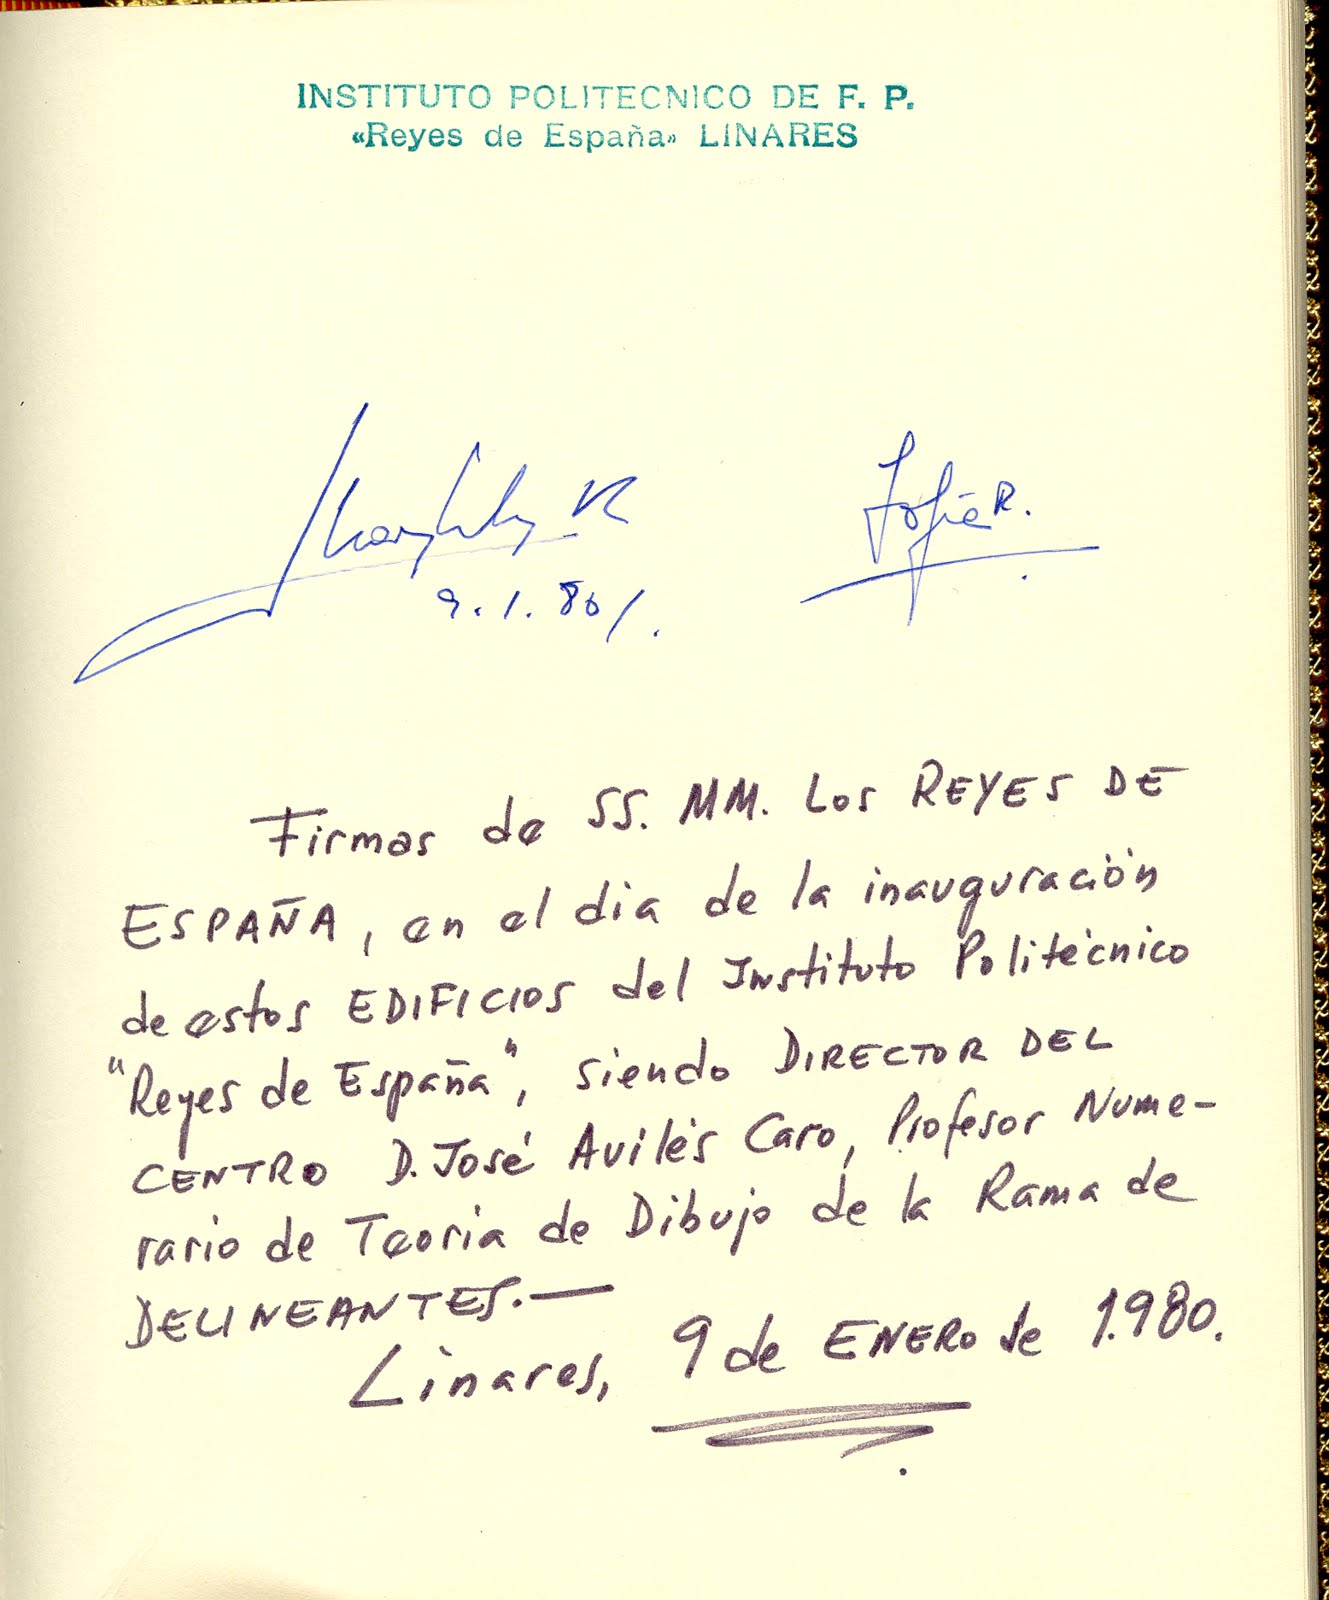 INSTITUTO POLITECNICO DE F. P.
«Reyes de España» LINARES
Juan Carlos R
Sofía R.
9.1.80/.
Firmas de SS. MM. Los REYES DE
ESPAÑA, en el dia de la inauguración
de estos EDIFICIOS del Instituto Politécnico
"Reyes de España", siendo DIRECTOR DEL
CENTRO D. José Avilés Caro, Profesor Nume-
rario de Teoria de Dibujo de la Rama de
DELINEANTES.—
Linares, 9 de ENERO de 1.980.